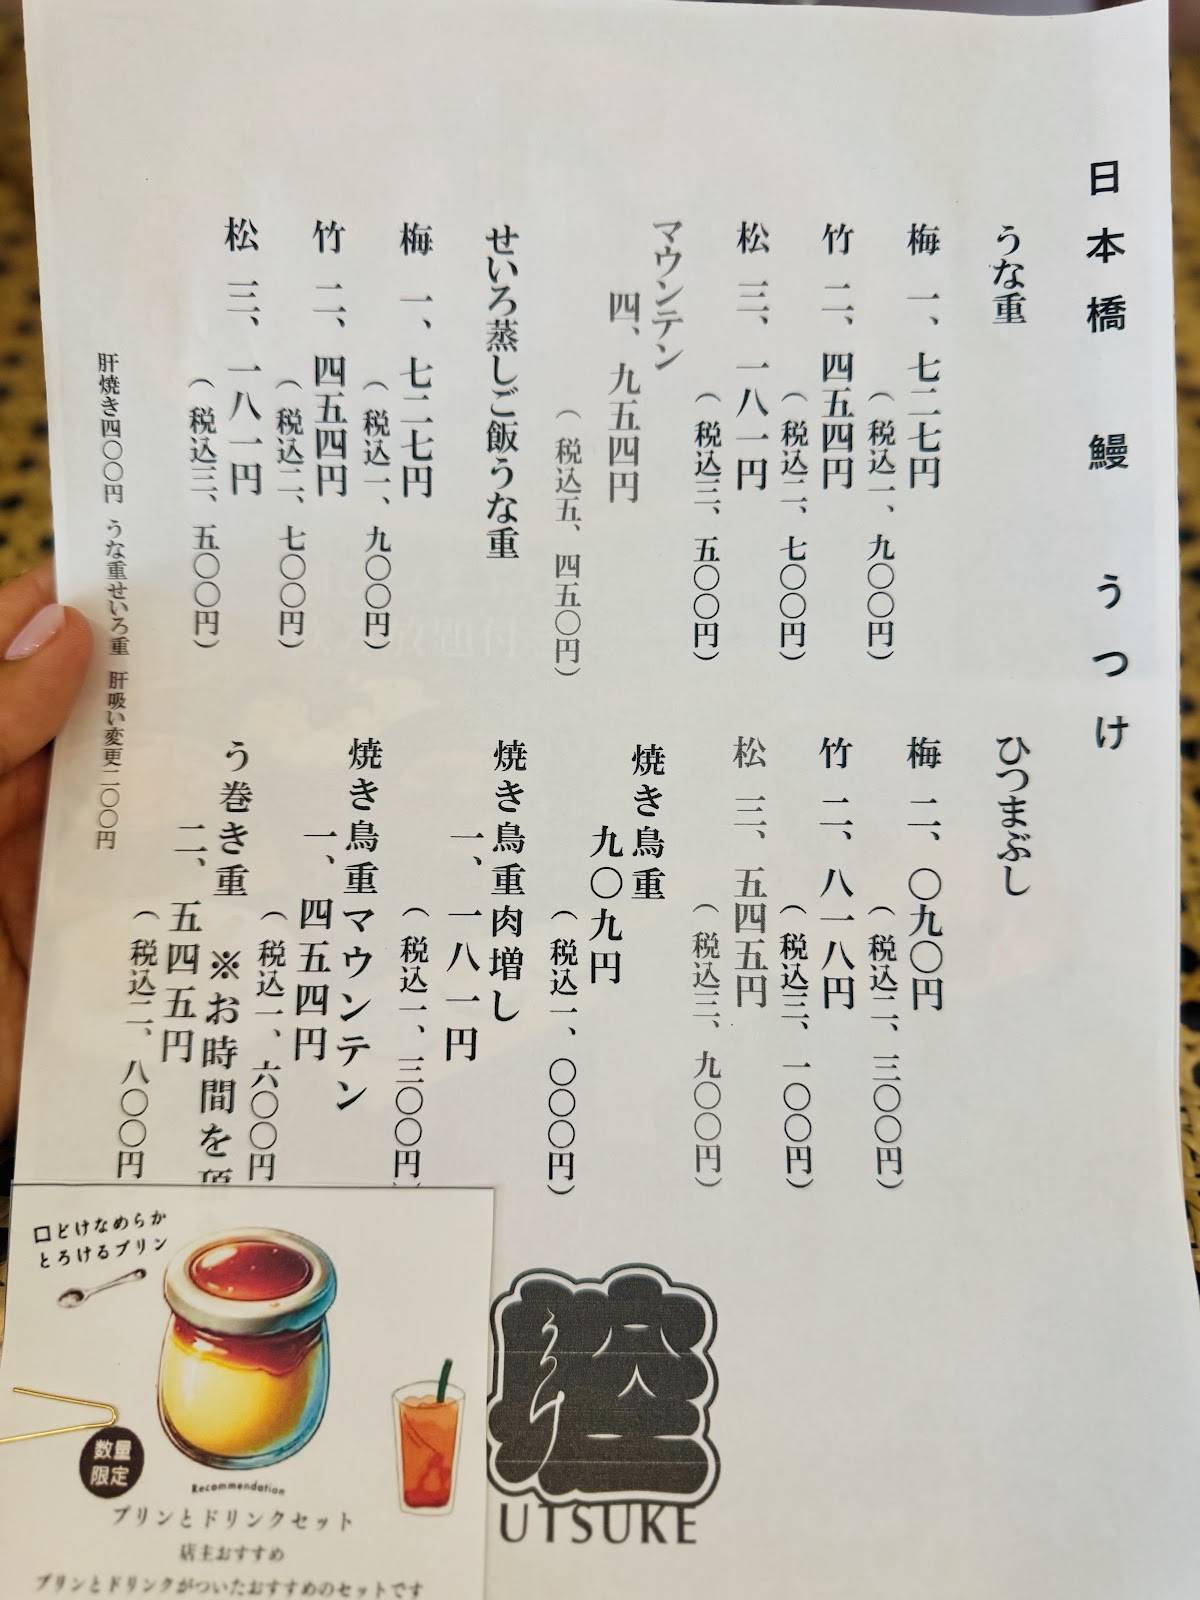 日本橋 鰻 うつけ
うな重
梅 一、七二七円
（税込一、九〇〇円）
竹 二、四五四円
（税込二、七〇〇円）
松 三、一八一円
（税込三、五〇〇円）
マウンテン
四、九五四円
（税込五、四五〇円）
せいろ蒸しご飯うな重
梅 一、七二七円
（税込一、九〇〇円）
竹 二、四五四円
（税込二、七〇〇円）
松 三、一八一円
（税込三、五〇〇円）
ひつまぶし
梅 二、〇九〇円
（税込二、三〇〇円）
竹 二、八一八円
（税込三、一〇〇円）
松 三、五四五円
（税込三、九〇〇円）
焼き鳥重
九〇九円
（税込一、〇〇〇円）
焼き鳥重肉増し
一、一八一円
（税込一、三〇〇円）
焼き鳥重マウンテン
一、四五四円
（税込一、六〇〇円
う巻き重 ※お時間を
二、五四五円
（税込二、八〇〇円
肝焼き四〇〇円 うな重せいろ重 肝吸い変更二〇〇円
口どけなめらか
とろけるプリン
数量
限定
Recommendation
プリンとドリンクセット
店主おすすめ
プリンとドリンクがついたおすすめのセットです
うつけ
UTSUKE